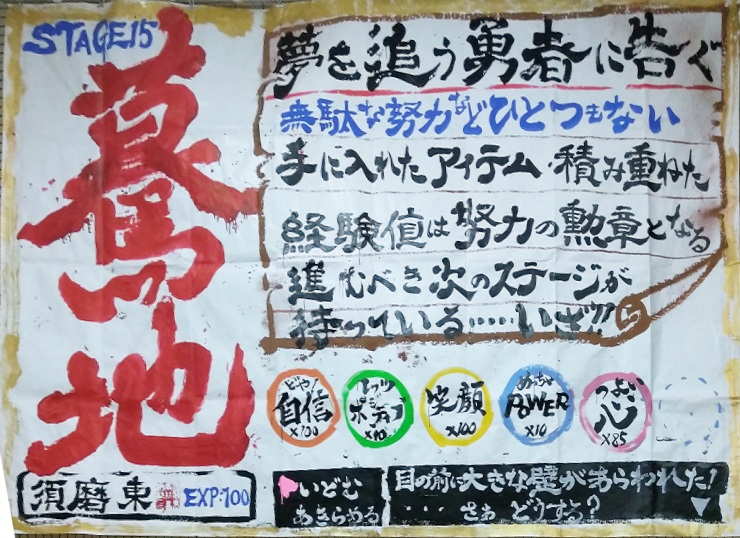 STAGE15
驀地
夢を追う勇者に告ぐ
無駄な努力などひとつもない
手に入れたアイテム・積み重ねた
経験値は努力の勲章となる
進むべき次のステージが
待っている……いざ!!!
どや!
自信
×100
ポジティブ
×10
笑顔
×100
めっちゃ
POWER
×10
つよい
心
×85
須磨東
EXP:100
いどむ
あきらめる
目の前に大きな壁があらわれた!
・・・さぁ どうする?